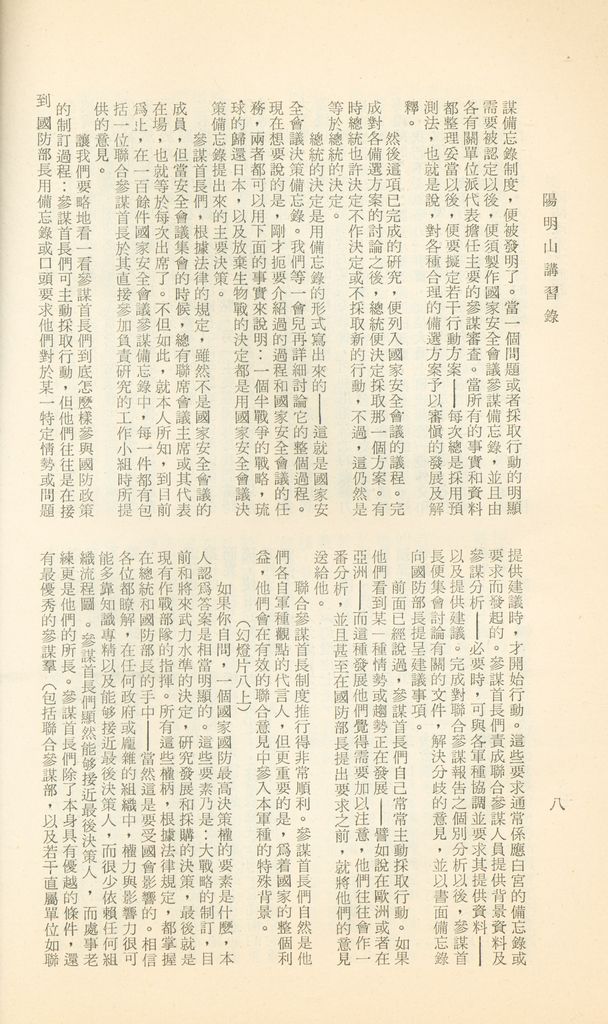 陽明山講習錄
八
謀備忘錄制度，便被發明了。當一個問題或者採取行動的明顯
需要被認定以後，便須製作國家安全會議參謀備忘錄，並且由
各有關單位派代表擔任主要的參謀審查。當所有的事實和資料
都整理妥當以後，便要擬定若干行動方案——每次總是採用預
測法，也就是說，對各種合理的備選方案予以審慎的發展及解
釋。
然後這項已完成的研究，便列入國家安全會議的議程。完
成對各備選方案的討論之後，總統便決定採取那一個方案。有
時總統也許決定不作決定或不採取新的行動，不過，這仍然是
等於總統的決定。
總統的決定是用備忘錄的形式寫出來的——這就是國家安
全會議決策備忘錄。我們等一會兒再詳細討論它的整個過程。
現在想要說的是，剛才扼要介紹過的過程和國家安全會議的任
務，兩者都可以用下面的事實來說明：一個半戰爭的戰略，琉
球的歸還日本，以及放棄生物戰的決定都是用國家安全會議決
策備忘錄提出來的主要決策。
參謀首長們，根據法律的規定，雖然不是國家安全會議的
成員，但當安全會議集會的時候，總有聯席會議主席或其代表
在場，也就等於每次出席了。不但如此，就本人所知，到目前
爲止，在一百餘件國家安全會議參謀備忘錄中，每一件都有包
括一位聯合參謀首長於其直接參加負責研究的工作小組時所提
供的意見。
讓我們要略地看一看參謀首長們到底怎麼樣參與國防政策
的制訂過程：參謀首長們可主動採取行動，但他們往往是在接
到國防部長用備忘錄或口頭要求他們對於某一特定情勢或問題
提供建議時，才開始行動。這些要求通常係應白宮的備忘錄或
要求而發起的。參謀首長們責成聯合參謀人員提供背景資料及
參謀分析——必要時，可與各軍種協調並要求其提供資料——
以及提供建議。完成對聯合參謀報告之個別分析以後，參謀首
長便集會討論有關的文件，解決分歧的意見，並以書面備忘錄
向國防部長提呈建議事項。
前面已經說過，參謀首長們自己常常主動採取行動。如果
他們看到某一種情勢或趨勢正在發展——譬如說在歐洲或者在
亞洲——而這種發展他們覺得需要加以注意，他們往往會作一
番分析，並且甚至在國防部長提出要求之前，就將他們的意見
送給他。
聯合參謀首長制度推行得非常順利。參謀首長們自然是他
們各自軍種觀點的代言人，但更重要的是，爲着國家的整個利
益，他們會在有效的聯合意見中參入本軍種的特殊背景。
（幻燈片八上）
如果你自問，一個國家國防最高決策權的要素是什麼，本
人認爲答案是相當明顯的。這些要素乃是：大戰略的制訂，目
前和將來武力水準的決定，研究發展和採購的決策，最後就是
現有作戰部隊的指揮。所有這些權柄，根據法律規定，都掌握
在總統和國防部長的手中——當然這是要受國會影響的。相信
各位都瞭解，在任何政府或龐雜的組織中，權力與影響力很可
能多靠知識專精以及能够接近最後決策人，而很少依賴任何組
織流程圖。參謀首長們顯然能够接近最後決策人，而處事老
練更是他們的所長。參謀首長們除了本身具有優越的條件，還
有最優秀的參謀羣（包括聯合參謀部，以及若干直屬單位如聯